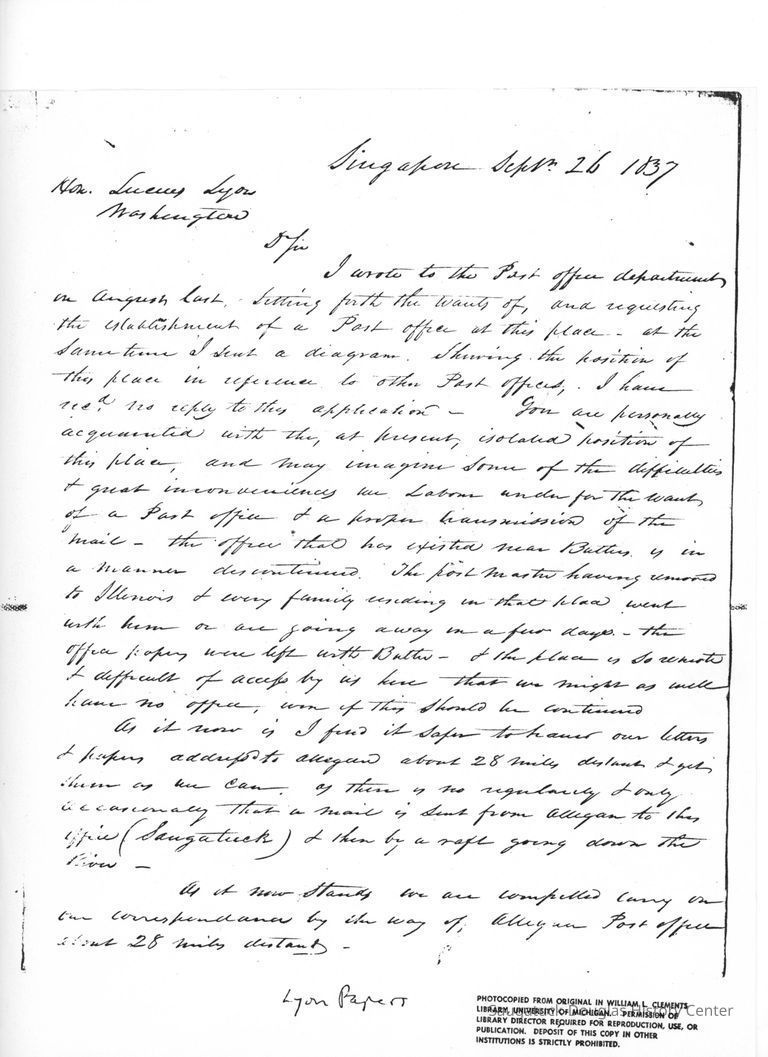 Singapore Septr 26 1837
Hon. Lucius Lyon
Washington
D Sir
I wrote to the Post office department
in August last, Setting forth the wants of, and requesting
the establishment of a Post office at this place - at the
same time I sent a diagram. Shewing the position of
this place in reference to other Post offices, I have
recd no reply to this application - You are personally
acquainted with the, at present, isolated position of
this place, and may imagine some of the difficulties
& great inconveniences we Labour under for the want
of a Post office & a proper transmission of the
mail - the office that has existed near Butlers is in
a manner discontinued. The post master having removed
to Illinois & every family residing in that place went
with him or are going away in a few days - the
office papers were left with Butler - & the place is so remote
& difficult of access by us here that we might as well
have no office, even if this should be continued
As it now is I find it safer to have our letters
& papers addressd to allegan about 28 miles distant & get
them as we can, as there is no regularity & only
occasionally that a mail is sent from Allegan to this
office (Saugatuck) & then by a raft going down the
River -
As it now stands we are compelled carry on
our correspondence by the way of, Allegan Post office
about 28 miles distant -
Lyon Papers
PHOTOCOPIED FROM ORIGINAL IN WILLIAM L. CLEMENTS
LIBRARY, UNIVERSITY OF MICHIGAN. PERMISSION OF
LIBRARY DIRECTOR REQUIRED FOR REPRODUCTION, USE, OR
PUBLICATION. DEPOSIT OF THIS COPY IN OTHER
INSTITUTIONS IS STRICTLY PROHIBITED.
Saugatuck-Douglas History Center